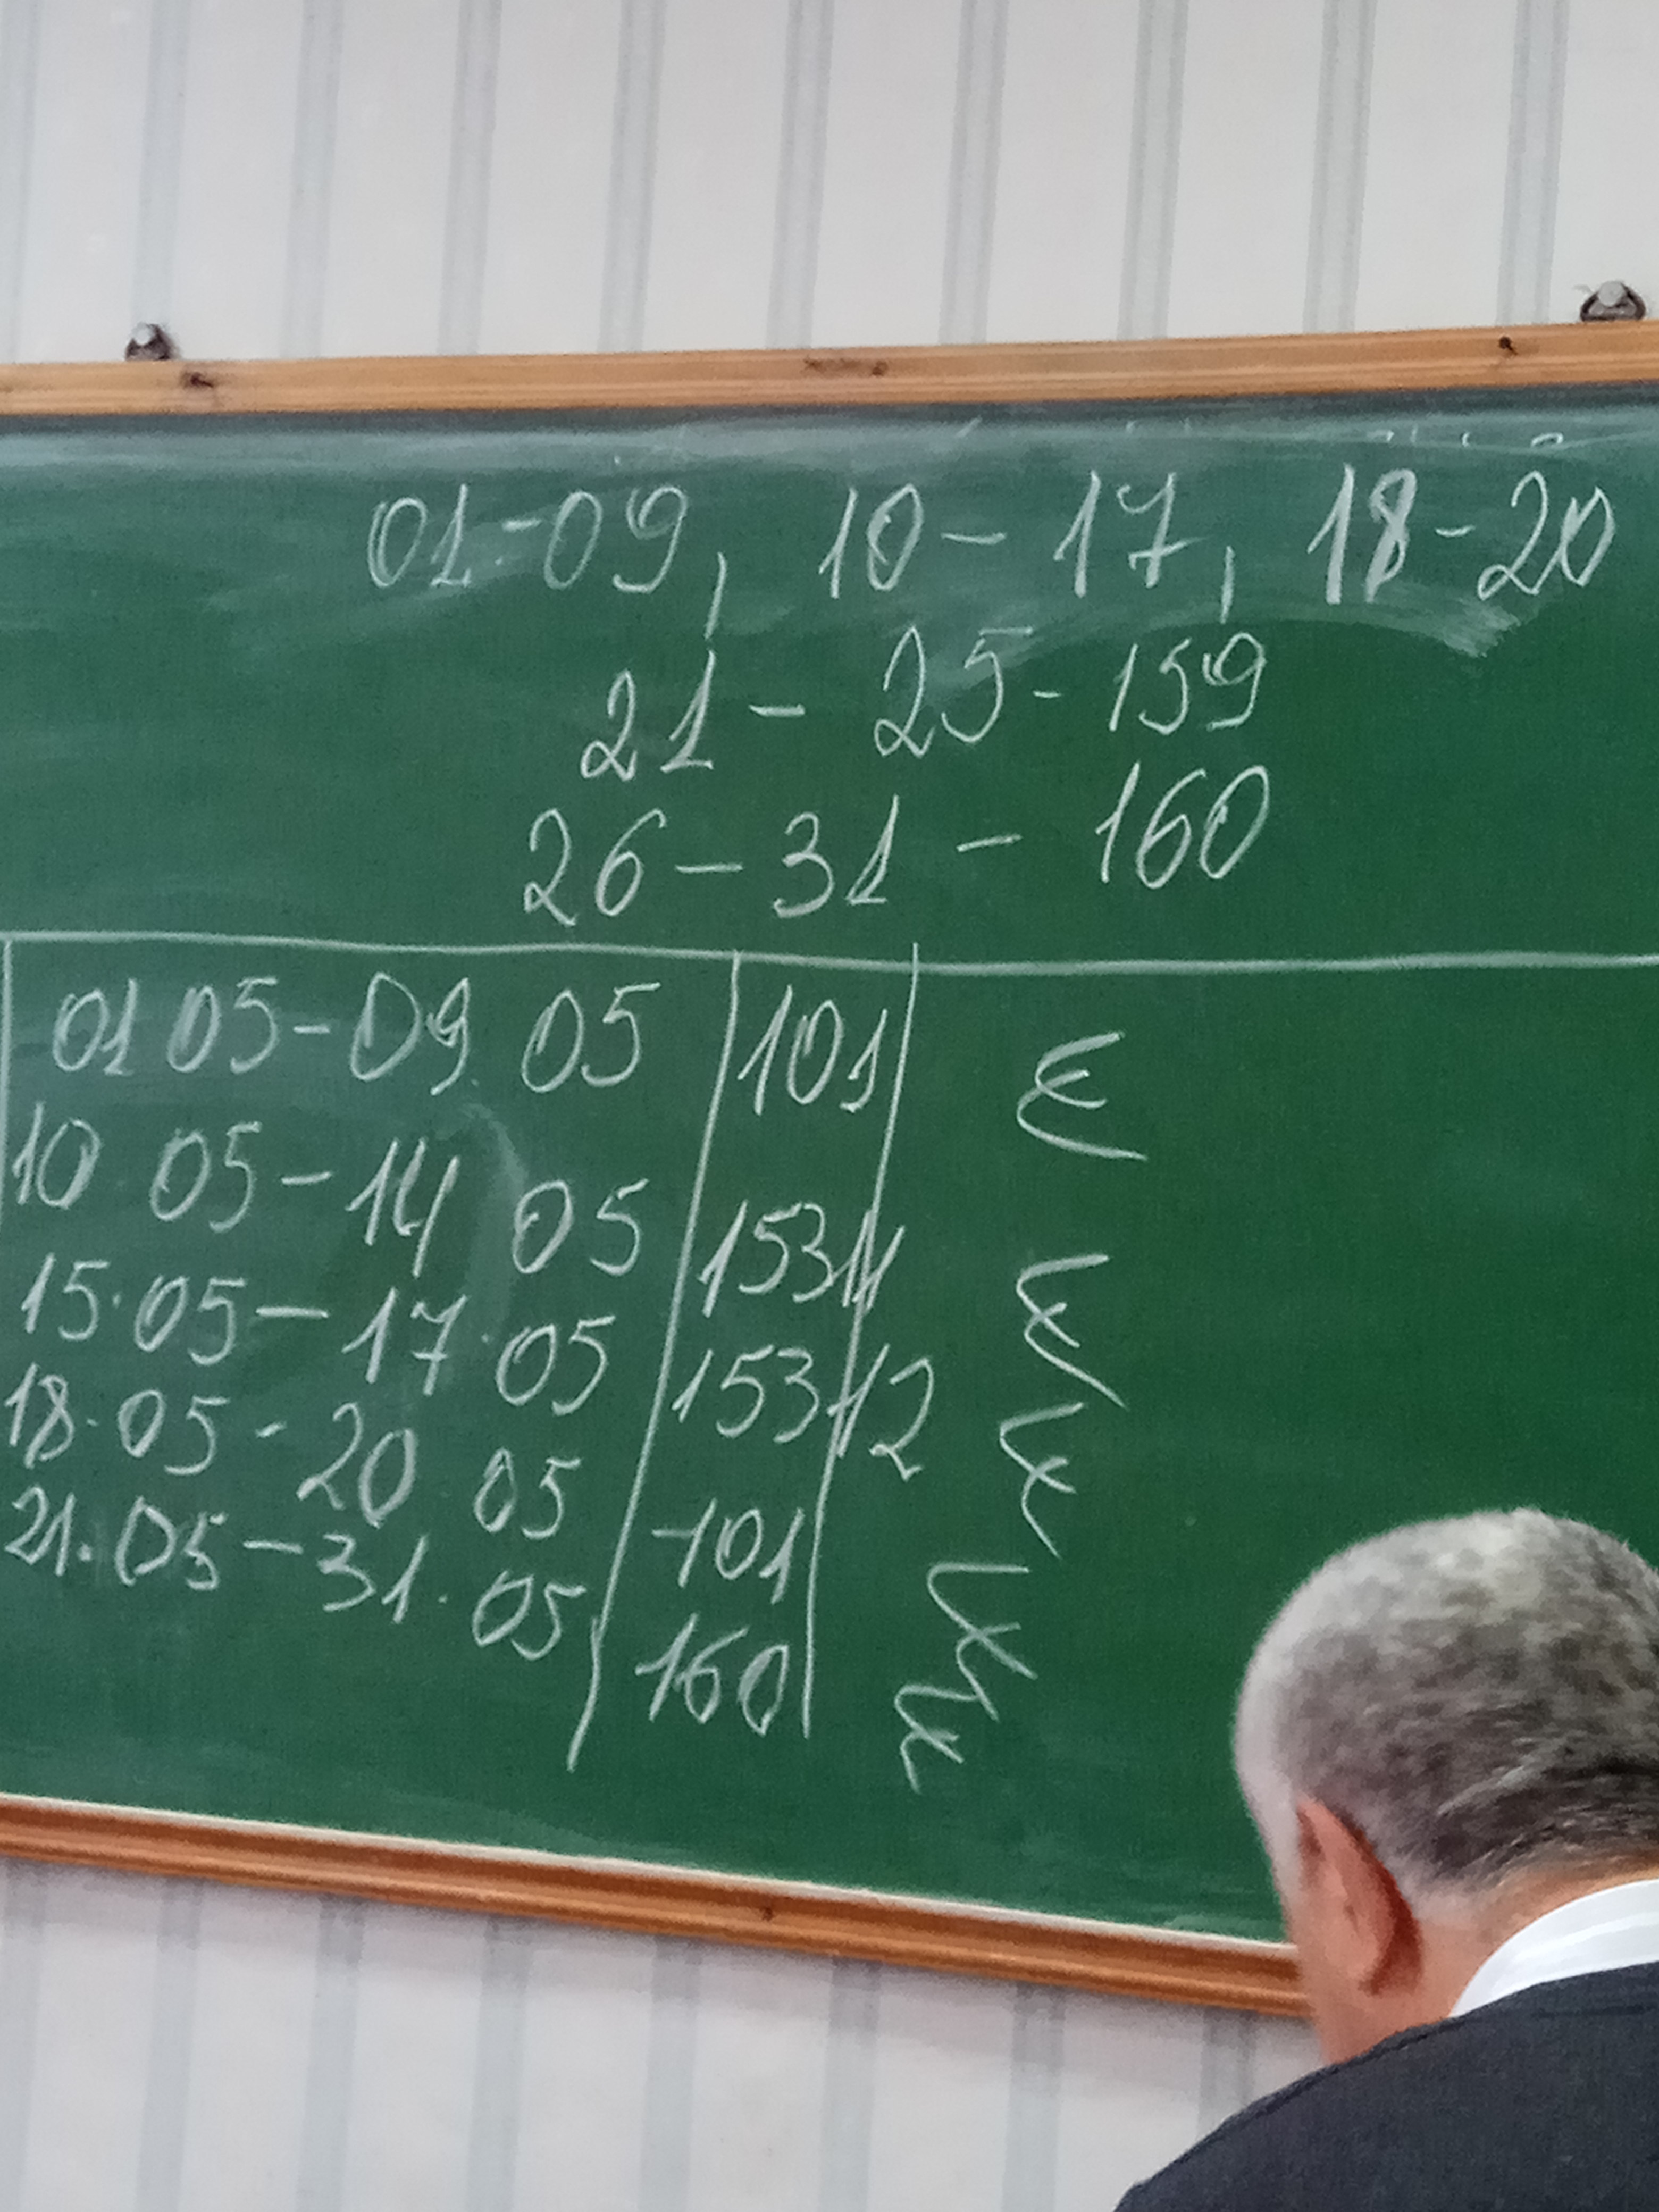 01-09, 10-17, 18-20
21-25-159
26-31-160
01 05-09. 05 101
10 05-14 05 153 11
15.05-17.05 153 12
18.05-20 05 101
21.05-31.05 160